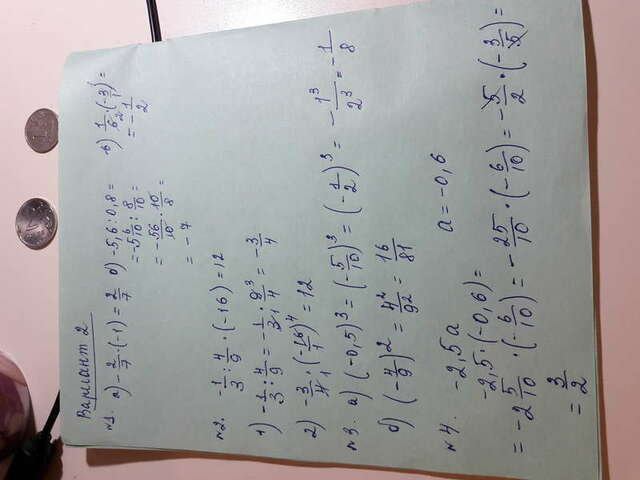 Вариант 2
№1. а) -2/7 · (-1) = 2/7 б) -5,6 : 0,8 = в) 1/6 · (-3/1) =
= -5 6/10 : 8/10 = = -1/2
= -56/10 · 10/8 =
= -7
№2. -1/3 : 4/9 · (-16) = 12
1) -1/3 : 4/9 = -1/3 · 9/4 = -3/4
2) -3/4 · (-16/1) = 12
№3. а) (-0,5)³ = (-5/10)³ = (-1/2)³ = -1³/2³ = -1/8
б) (-4/9)² = 4²/9² = 16/81
№4. -2,5a a = -0,6
-2,5 · (-0,6) =
= -2 5/10 · (-6/10) = -25/10 · (-6/10) = -5/2 · (-3/5) =
= 3/2